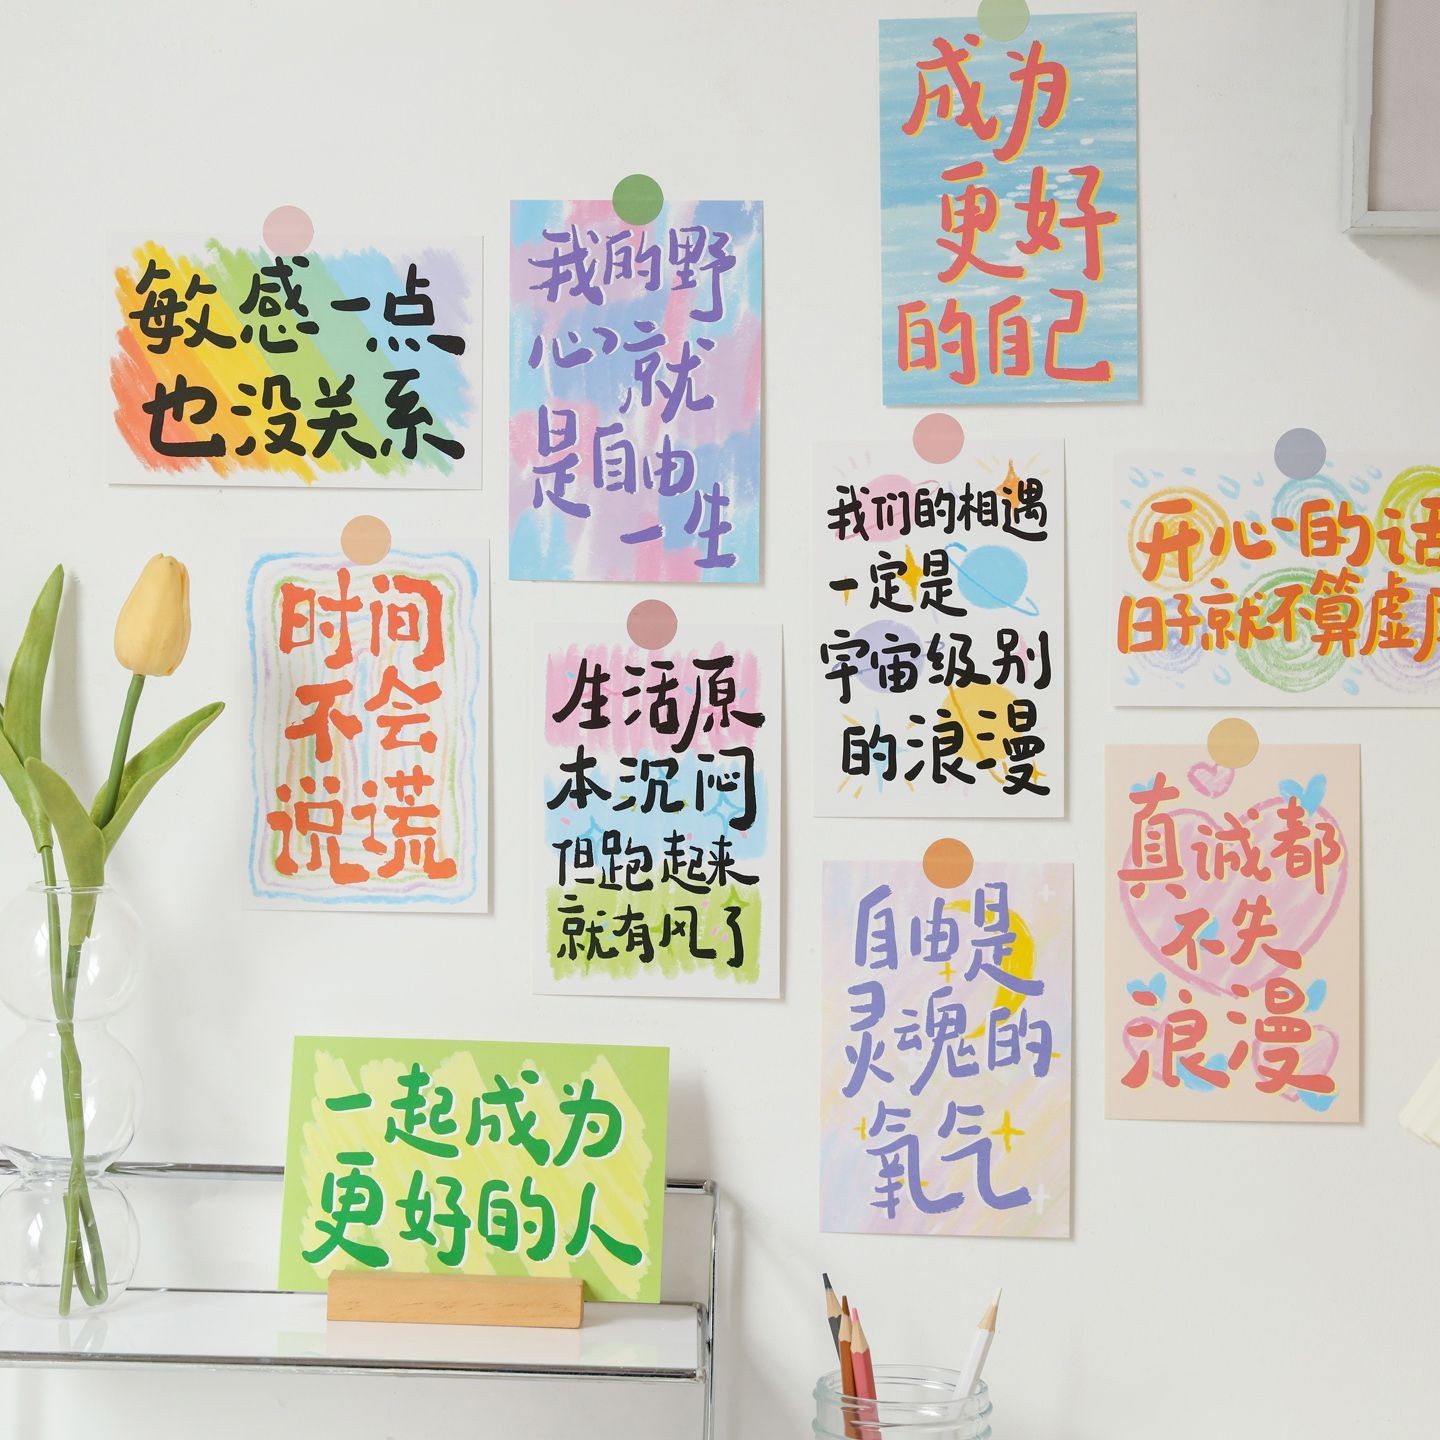 成为
更好
的自己
敏感一点
也没关系
我的野
心就
是自由
一生
我们的相遇
一定是
宇宙级别
的浪漫
开心的话
日子就不算虚
时间
不会
说谎
生活原
本沉闷
但跑起来
就有风了
真诚都
不失
浪漫
自由是
灵魂的
氧气
一起成为
更好的人